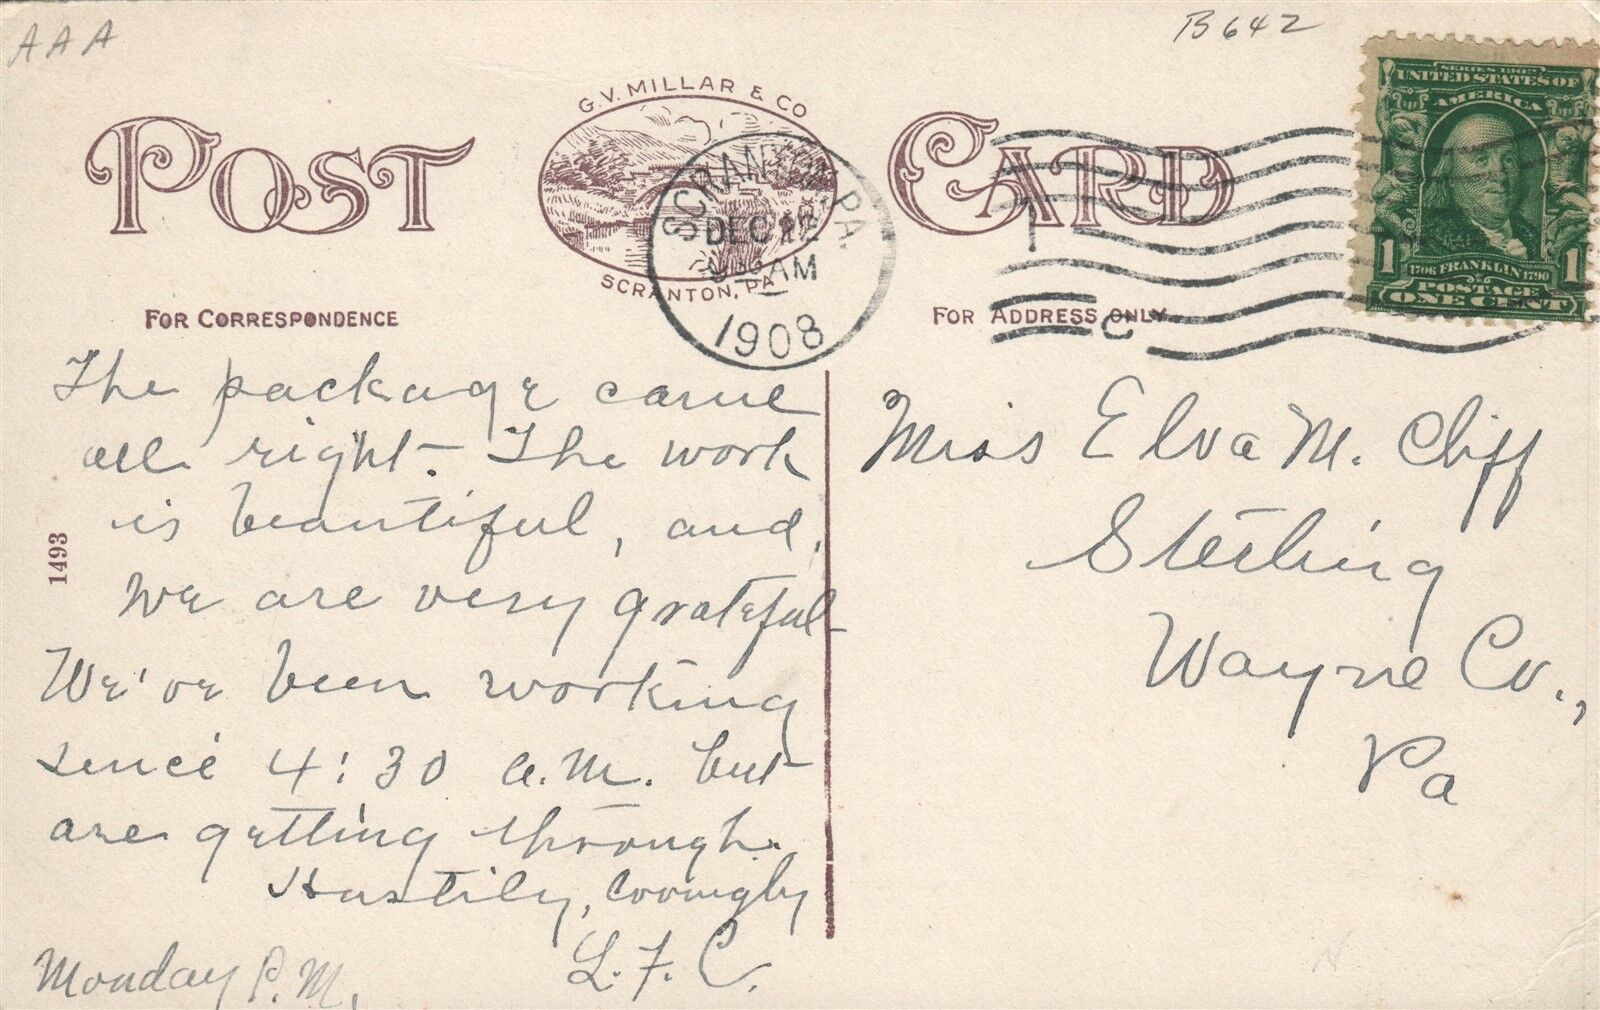 AAA
B642
G.V. MILLAR & CO
SCRANTON, PA
POST CARD
SCRANTON, PA.
DEC
AM
1908
SERIES 1902
UNITED STATES OF
AMERICA
1706 FRANKLIN 1790
POSTAGE
1 ONE CENT 1
C
FOR CORRESPONDENCE
The package came
all right. The work
is beautiful, and,
we are very grateful-
We've been working
since 4:30 a.m. but
are getting through.
Hastily,
L. F. C.
Monday P.M.
1493
FOR ADDRESS ONLY
Miss Elva M. Cliff
Sterling
Wayne Co.,
Pa